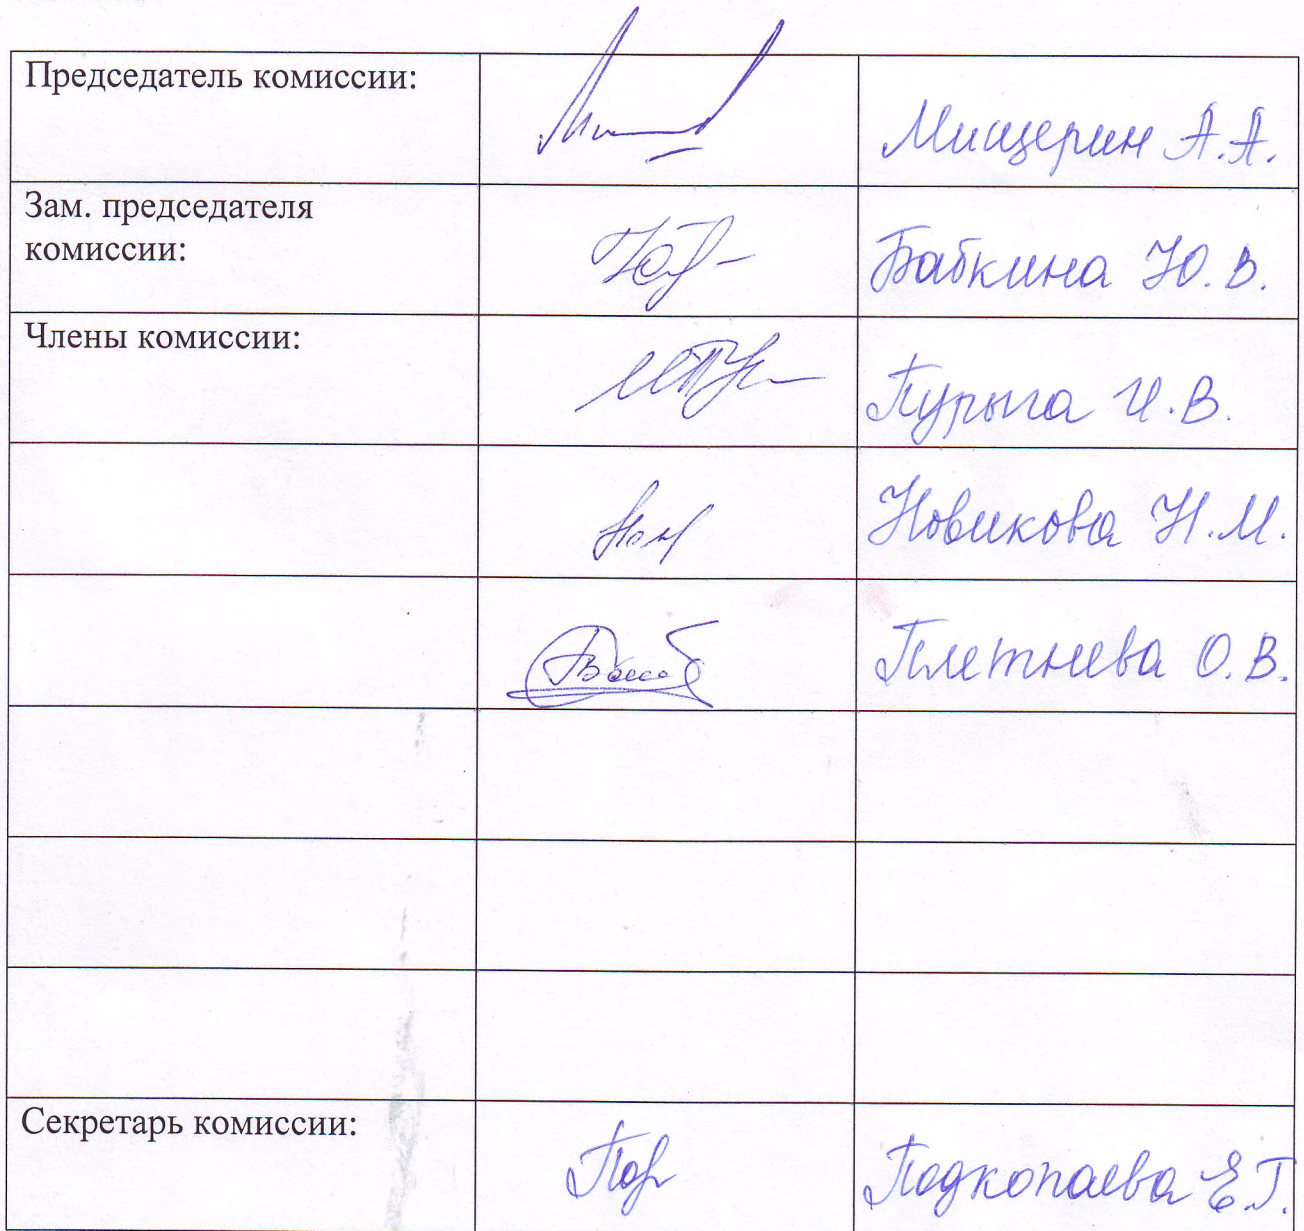 Председатель комиссии:
Мищерин А.А.
Зам. председателя
комиссии:
Бабкина Ю.В.
Члены комиссии:
Пурыга И.В.
Новикова Н.М.
Плетнева О.В.
Секретарь комиссии:
Подкопаева Е.Г.